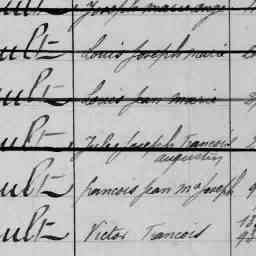 ult Joseph marie ange
ult Louis Joseph marie
ult Louis Jean marie
ult Jules Joseph Francois
augustin
ult francois Jean Mie Joseph 9
ult Victor Francois